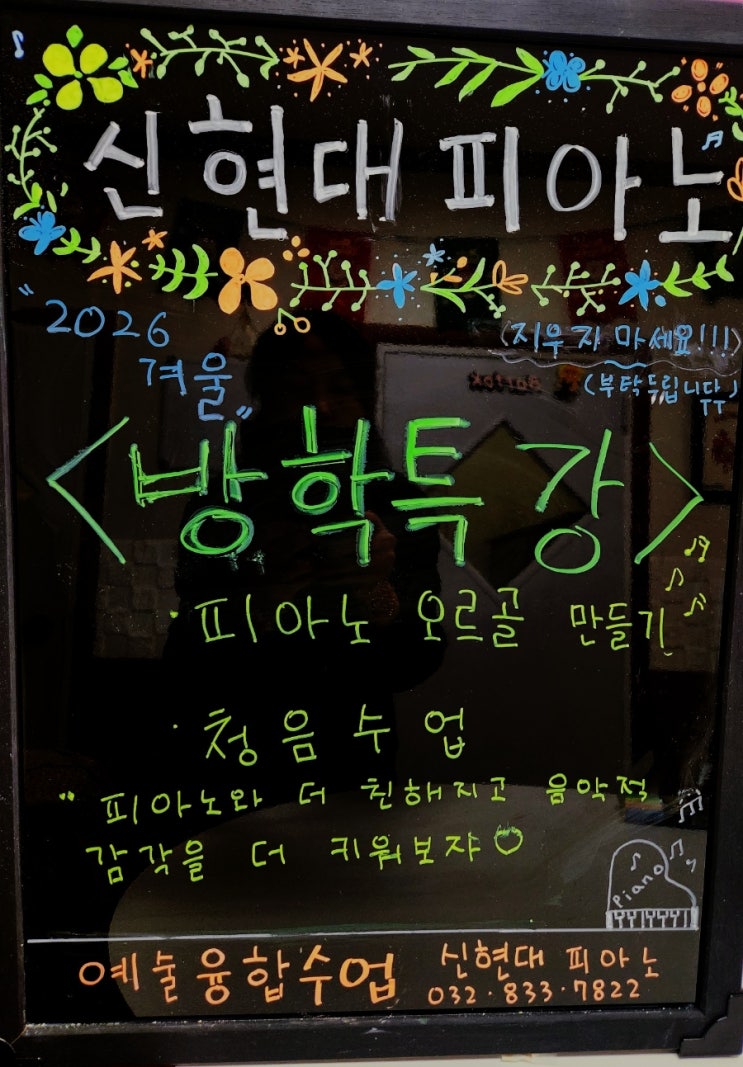 신현대 피아노
"2026
겨울"
(지우지 마세요!!!)
(부탁드립니다ㅜㅜ)
<방학특강>
· 피아노 오르골 만들기
· 청음수업
"피아노와 더 친해지고 음악적
감각을 더 키워보쟈♡
Piano
예술융합수업 신현대 피아노
032·833·7822